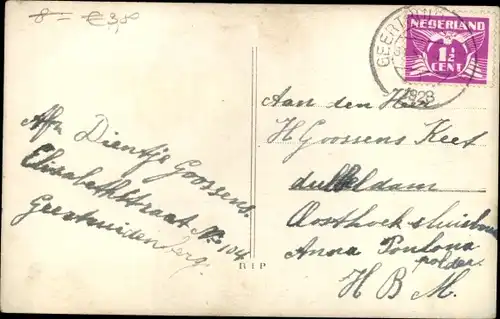 8 — € 3,50
GEERTRUID
1928
NEDERLAND
1½
CENT
Afn Dientje Goossens
Elisabethstraat No 104
Geertruidenberg.
Aan den Heer
H Goossens Keet
dubbeldam
Oosthoek sluis
Anna Poulona
polder
H B M.
RIP